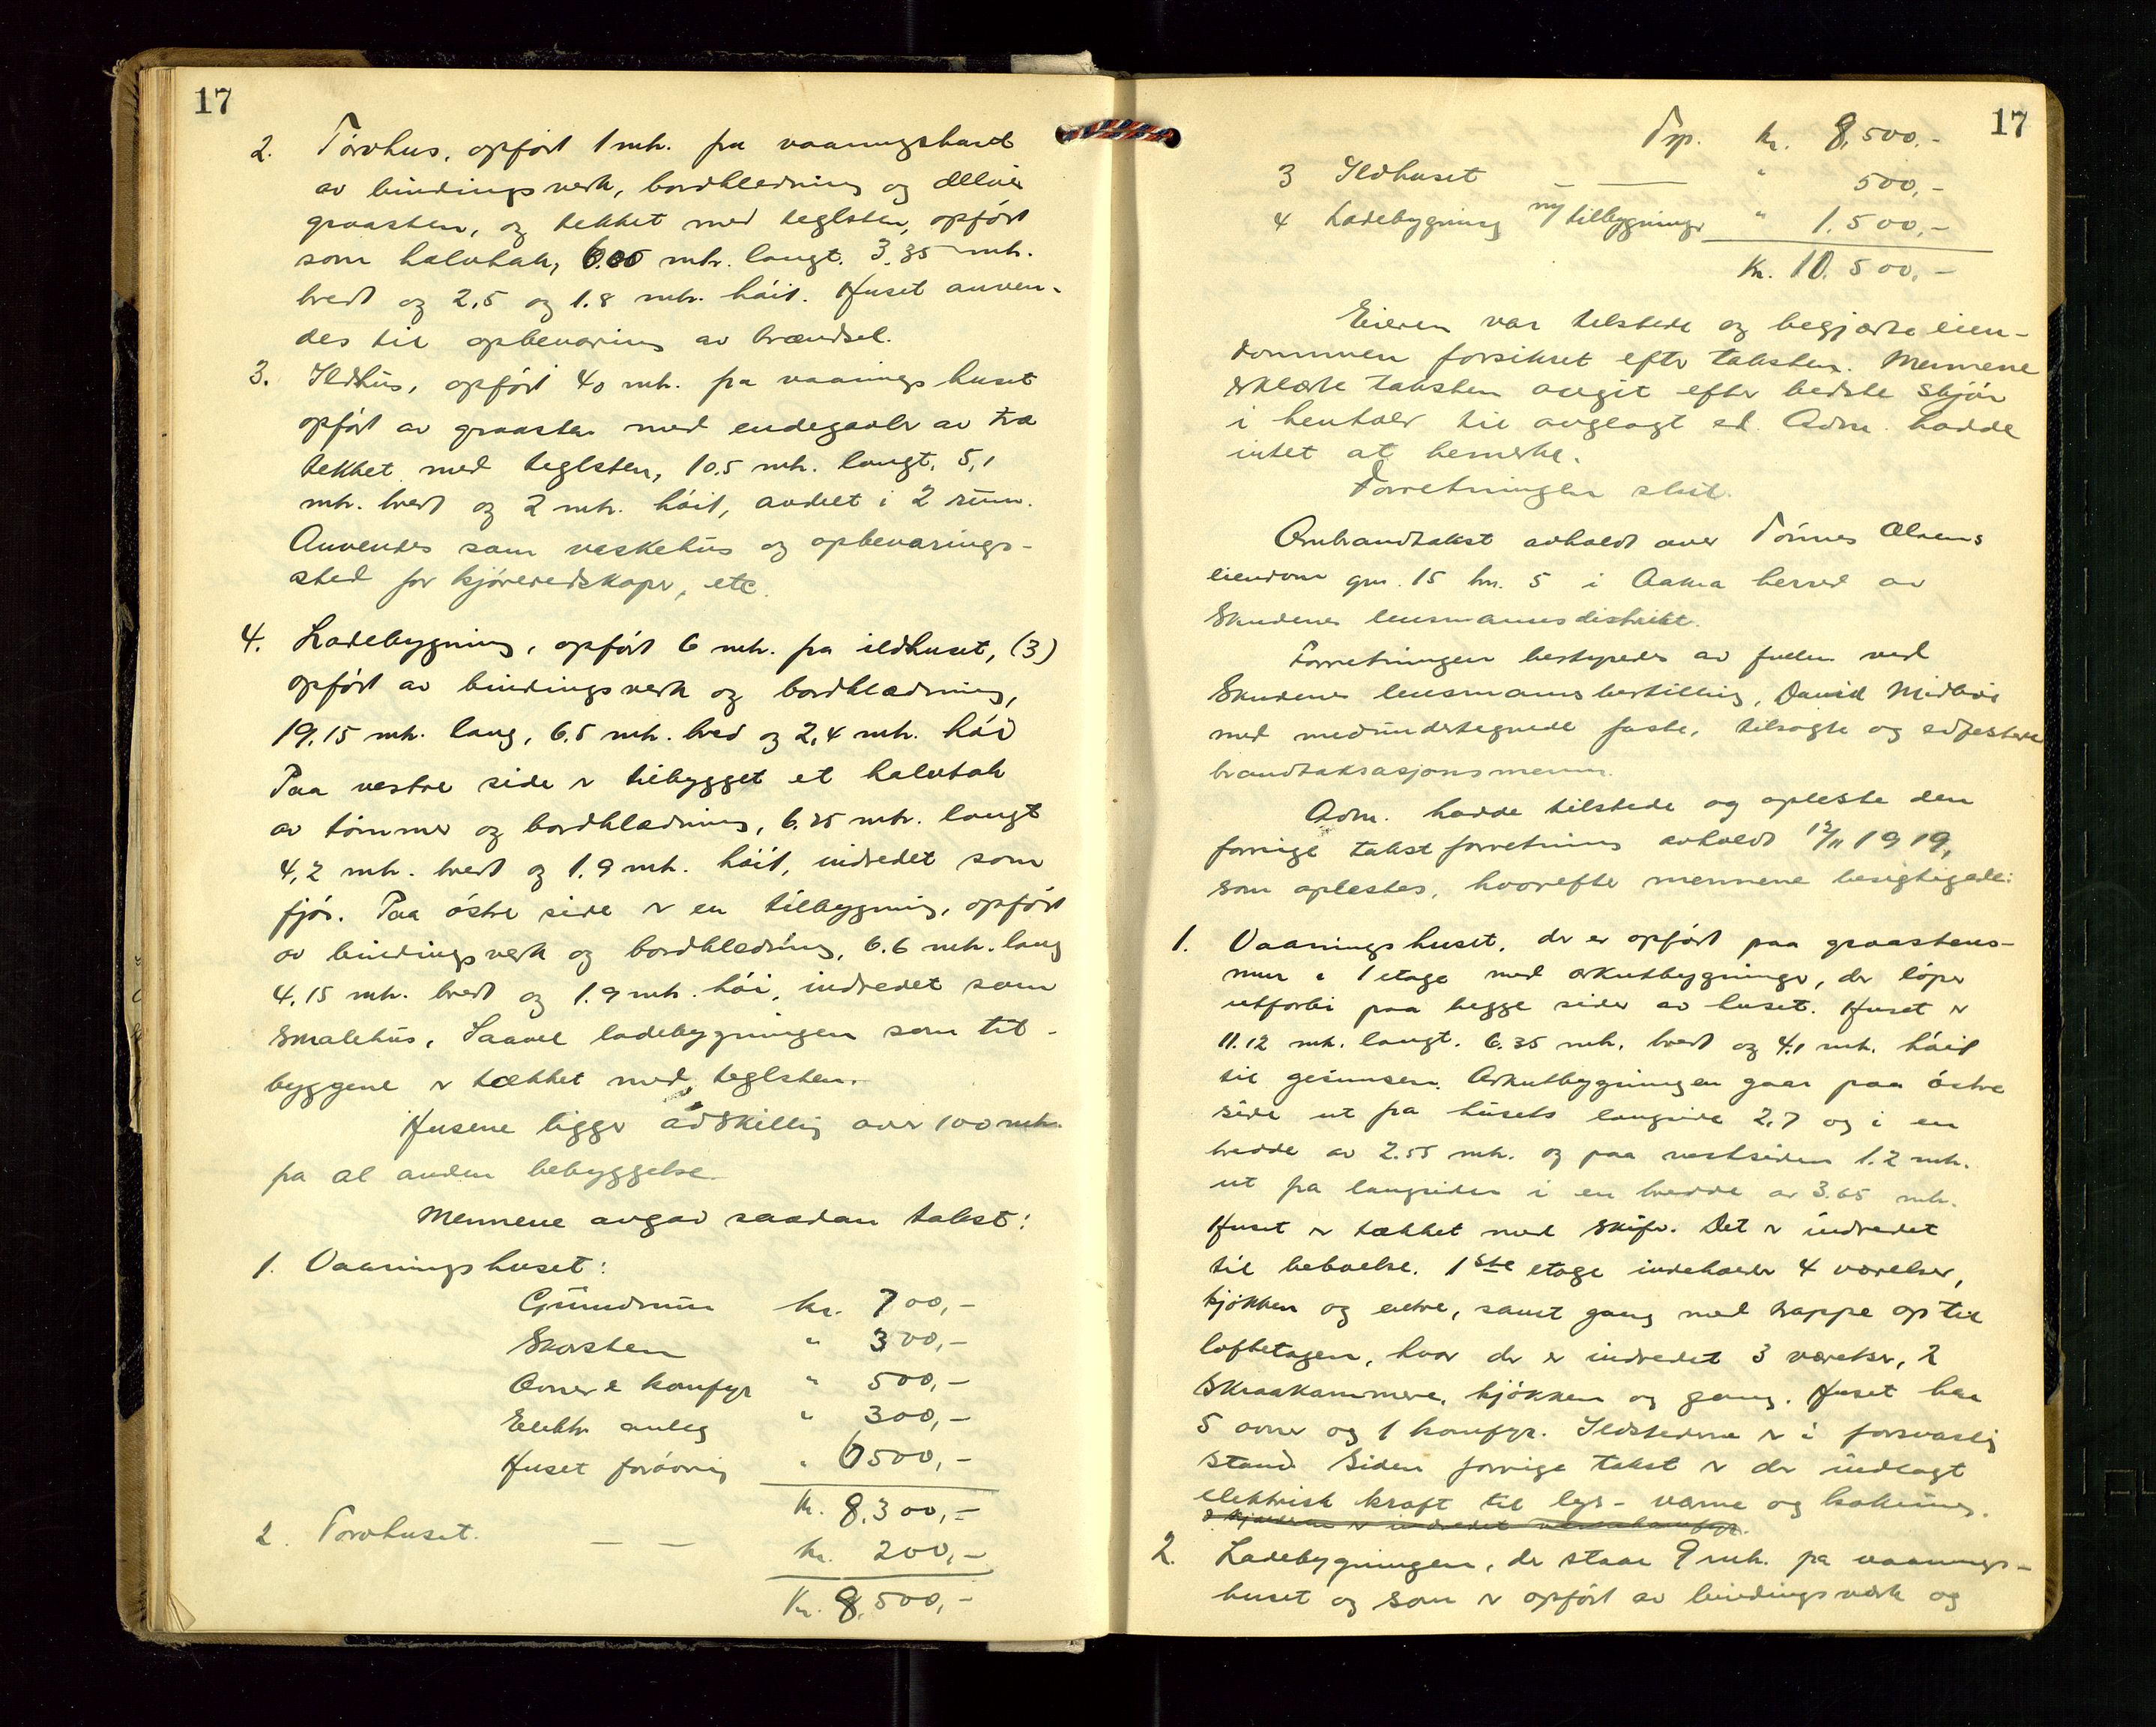 17
2. Torvhus, opført 1 mtr. fra vaaningshuset
av bindingsverk, bordklædning og delvis
graasten, og tekket med teglsten, opført
som halvtak, 6.00 mtr. langt. 3.35 mtr.
bredt og 2,5 og 1.8 mtr. høit. Huset anven-
des til opbevaring av brændsel.
3. Ildhus, opført 40 mtr. fra vaaningshuset
opført av graasten med endegavler av træ
tekket med teglsten, 10.5 mtr. langt, 5,1
mtr. bredt og 2 mtr. høit, avdelt i 2 rum.
Anvendes som vaskehus og opbevarings-
sted for kjøreredskaper, etc.
4. Ladebygning, opført 6 mtr. fra ildhuset, (3)
opført av bindingsverk og bordklædning,
19.15 mtr. lang, 6.5 mtr. bred og 2,4 mtr. høi
Paa vestre side er tilbygget et halvtak
av tømmer og bordklædning, 6.25 mtr. langt
4,2 mtr. bredt og 1.9 mtr. høit, indredet som
fjøs. Paa østre side er en tilbygning, opført
av bindingsverk og bordklædning, 6.6 mtr. lang
4.15 mtr. bredt og 1.9 mtr. høi, indredet som
smalehus. Saavel ladebygningen som til-
byggene er tækket med teglsten.
Husene ligger adskillig over 100 mtr.
fra al anden bebyggelse.
Mennene avgav saadan takst:
1. Vaaningshuset:
Grundmur kr. 700,-
Skorsten " 300,-
Ovner & komfyr " 500,-
Elektr. anleg " 300,-
Huset forøvrig " 6500,-
Kr. 8,300,-
2. Torvhuset. — — kr. 200,-
Kr. 8,500,-
17
Trp. kr. 8,500.-
3 Ildhuset — — " 500,-
4 Ladebygning m/ tilbygninger " 1.500,-
Kr. 10.500,-
Eieren var tilstede og begjærte eien-
dommen forsikret efter taksten. Mennene
erklærte taksten avgit efter bedste skjøn
i henhold til avlagt ed. Adm. hadde
intet at bemerke.
Forretningen slut.
Ombrandtakst avholdt over Tønnes Olsens
eiendom gnr. 15 bn. 5 i Aakra herred av
Skudenes lensmannsdistrikt.
Forretningen bestyredes av fullm. ved
Skudenes lensmannsbestilling, David Midbøe
med medundertegnede faste, tilsagte og edfestede
brandtaksasjonsmenn.
Adm. hadde tilstede og opleste den
forrige takstforretning avholdt 12/11 1919,
som oplestes, hvorefter mennene besigtigede:
1. Vaaningshuset, der er opført paa graastens-
mur i 1 etage med arkutbygninger, der løper
utforbi paa begge sider av huset. Huset er
11.12 mtr. langt. 6.35 mtr. bredt og 4,1 mtr. høit
til gesimsen. Arkutbygningen gaar paa østre
side ut fra husets langside 2,7 og i en
bredde av 2.55 mtr. og paa vestsiden 1.2 mtr.
ut fra langsiden i en bredde av 3.65 mtr.
Huset er tækket med skifer. Det er indredet
til beboelse. 1ste etage indeholder 4 værelser,
kjøkken og entre, samt gang med trappe op til
loftetagen, hvor der er indredet 3 værelser, 2
skraakammere, kjøkken og gang. Huset har
5 ovner og 1 komfyr. Ildstederne er i forsvarlig
stand. Siden forrige takst er der indlagt
elektrisk kraft til lys- varme og kokning.
2. Ladebygningen, der staar 9 mtr. fra vaanings-
huset og som er opført av bindingsverk og